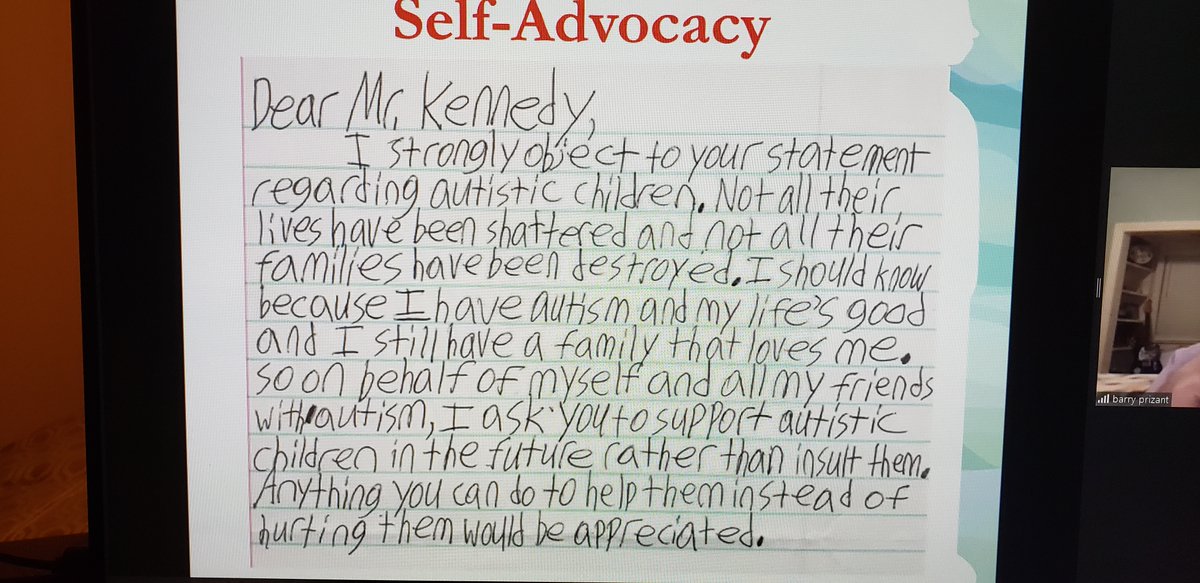 Self-Advocacy
Dear Mr. Kennedy,
I strongly object to your statement
regarding autistic children. Not all their
lives have been shattered and not all their
families have been destroyed. I should know
because I have autism and my life's good
and I still have a family that loves me.
so on behalf of myself and all my friends
with autism, I ask you to support autistic
children in the future rather than insult them.
Anything you can do to help them instead of
hurting them would be appreciated.
barry prizant